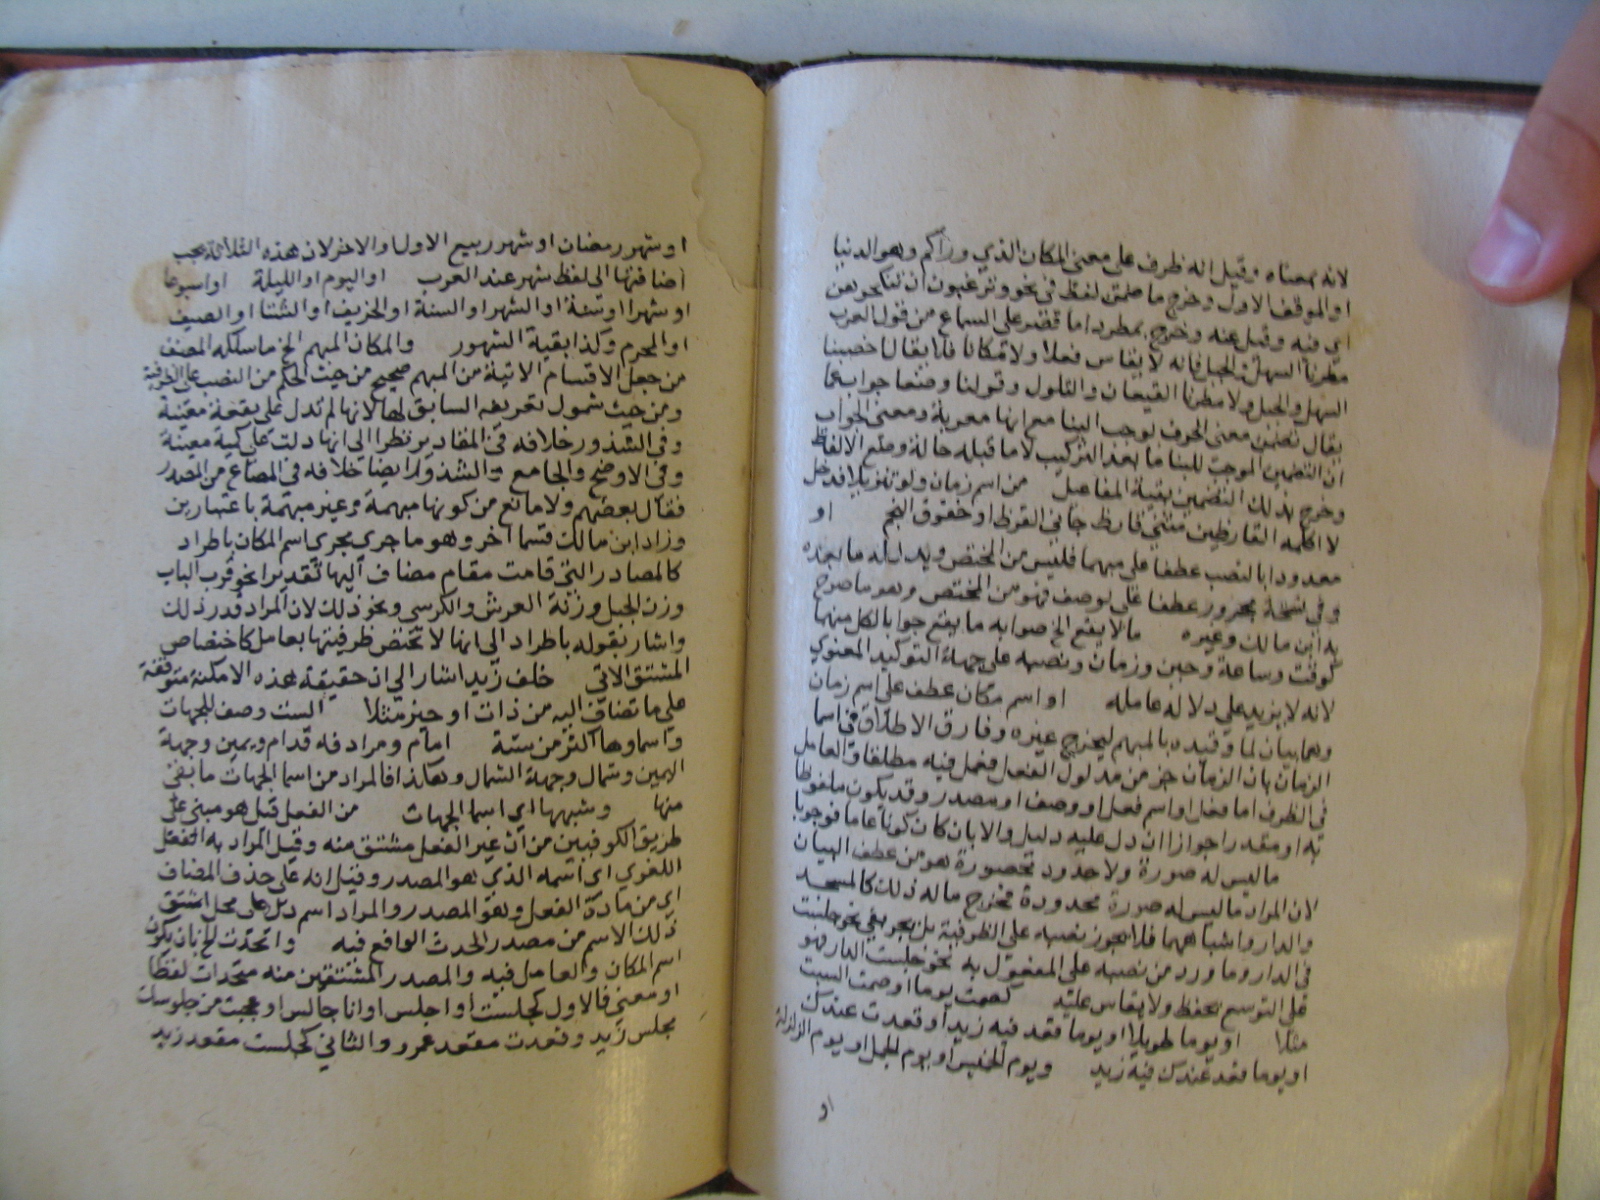 لانه بمعناه وقيل انه ظرف على معنى المكان الذي وراكم وهو الدنيا
او الموقف الاول وخرج ما ضمن لفظ في نحو وترغبون ان تنكحوهن
اي فيه وقيل عنه وخرج بمطرد اما قصر على السماع من قول العرب
مطرنا السهل والجبل فانه لا يقاس فعلا ولا مكانا فلا يقال اخصبنا
السهل والجبل ولا مطرنا القيعان والتلول وقولنا وضعا جوابعما
يقال تضمن معنى الحرف يوجب البنا مع انها معربة ومعنى الجواب
ان التضمن الموجب للبنا ما بعد التركيب لا ما قبله حالة وضع الالفاظ
وخرج بذلك التضمن بقية المفاعيل من اسم زمان ولو تنزيلا فدخل
لا اكلمه القارظين مثنى قارظ جاني القرظ او خفوق النجم او
معدودا بالنصب عطفا على مبهما فليس من المختص ويدل له ما بعده
وفي نسخة بمجرور عطفا على بوصف فهو من المختص وهو ما صرح
به ابن مالك وغيره ما لا يقع الخ صوابه ما يقع جوابا لكل منهما
كوقت وساعة وحين وزمان ونصبه على جهة التوكيد المعنوي
لانه لا يزيد على دلاله عامله او اسم مكان عطف على اسم زمان
وهما بيان لما وقيده بالمبهم ليخرج غيره وفارق الاطلاق في اسما
الزمان بان الزمان جز من مدلول الفعل فعمل فيه مطلقا والعامل
في الظرف اما فعل او اسم فعل او وصف او مصدر وقد يكون ملفوظا
به او مقدرا جوازا ان دل عليه دليل والا بان كان كونا عاما فوجوبا
ما ليس له صورة ولا حدود محصورة هو من عطف البيان
لان المراد ما ليس له صورة محدودة فخرج ما له ذلك كالمسجد
والدار واشباههما فلا يجوز نصبه على الظرفية بل يجر بفي نحو جلست
في الدار وما ورد من نصبه على المفعول به نحو جلست الدار فهو
على التوسع يحفظ ولا يقاس عليه كصمت يوما او صمت السبت
مثلا او يوما طويلا او يوما قعد فيه زيد او قعدت عندك
او يوما قعد عندك فيه زيد ويوم الخميس او يوم الجمل او يوم الزلزلة
او
او شهر رمضان او شهر ربيع الاول او الاخر لان هذه الثلاثة يجب
اضافتها الى لفظ شهر عند العرب او اليوم او الليلة او اسبوعا
او شهرا او سنة او الشهر او السنة او الخريف او الشتا او الصيف
او المحرم وكذا بقية الشهور والمكان المبهم الخ ما سلكه المصنف
من جعل الاقسام الاتية من المبهم صحيح من حيث الحكم من النصب على الظرفية
ومن حيث شمول تعريفه السابق لها لانها لم تدل على بقعة معينة
وفي الشذور خلافه في المقادير نظرا الى انها دلت على كمية معينة
وفي الاوضح والجامع والشذور ايضا خلافه في المصاغ من المصدر
فقال بعضهم ولا مانع من كونها مبهمة وغير مبهمة باعتبارين
وزاد ابن مالك قسما اخر وهو ما جرى مجرى اسم المكان باطراد
كالمصادر التي قامت مقام مضاف اليها تقديرا نحو قرب الباب
وزن الجبل وزنة العرش والكرسي ونحو ذلك لان المراد قدر ذلك
واشار بقوله باطراد الى انها لا تختص ظرفيتها بعامل كاختصاص
المشتق الاتي خلف زيد اشار الى ان حقيقة هذه الامكنة متوقفة
على ما تضاف اليه من ذات او حيز مثلا الست وصف للجهات
واسماوها اكثر من ستة امام ومرادفه قدام ويمين وجهة
اليمين وشمال وجهة الشمال وهكذا فالمراد من اسما الجهات ما بقي
منها وشبهها اي اسما الجهات من الفعل قيل هو مبني على
طريق الكوفيين من ان غير الفعل مشتق منه وقيل المراد به الفعل
اللغوي اي اسمه الذي هو المصدر وقيل انه على حذف المضاف
اي من مادة الفعل وهو المصدر والمراد اسم دل على محل اشتق
ذلك الاسم من مصدر الحدث الواقع فيه واتحدت الخ بان يكون
اسم المكان والعامل فيه والمصدر المشتقين منه متحدات لفظا
او معنى فالاول كجلست او اجلس او انا جالس او عجبت من جلوسك
مجلس زيد وقعدت مقعد عمرو والثاني كجلست مقعد زيد